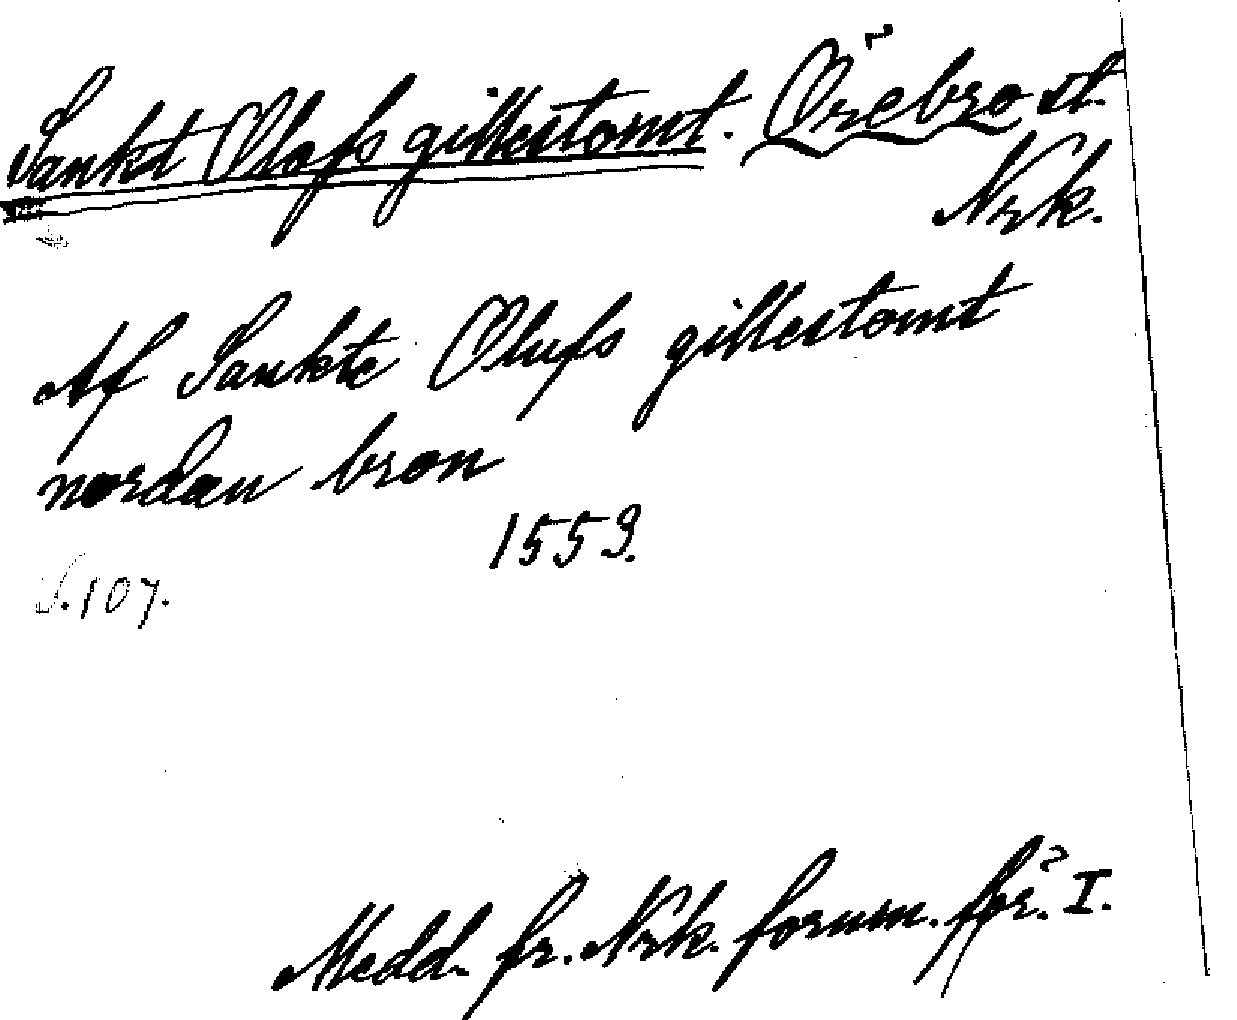 Sankt Olofs gillestomt. Örebro st.
Nrk.
Af Sankte Olufs gillestomt
nordan bron
1559.
S. 107.
Medd. fr. Nrk. fornm. för. I.